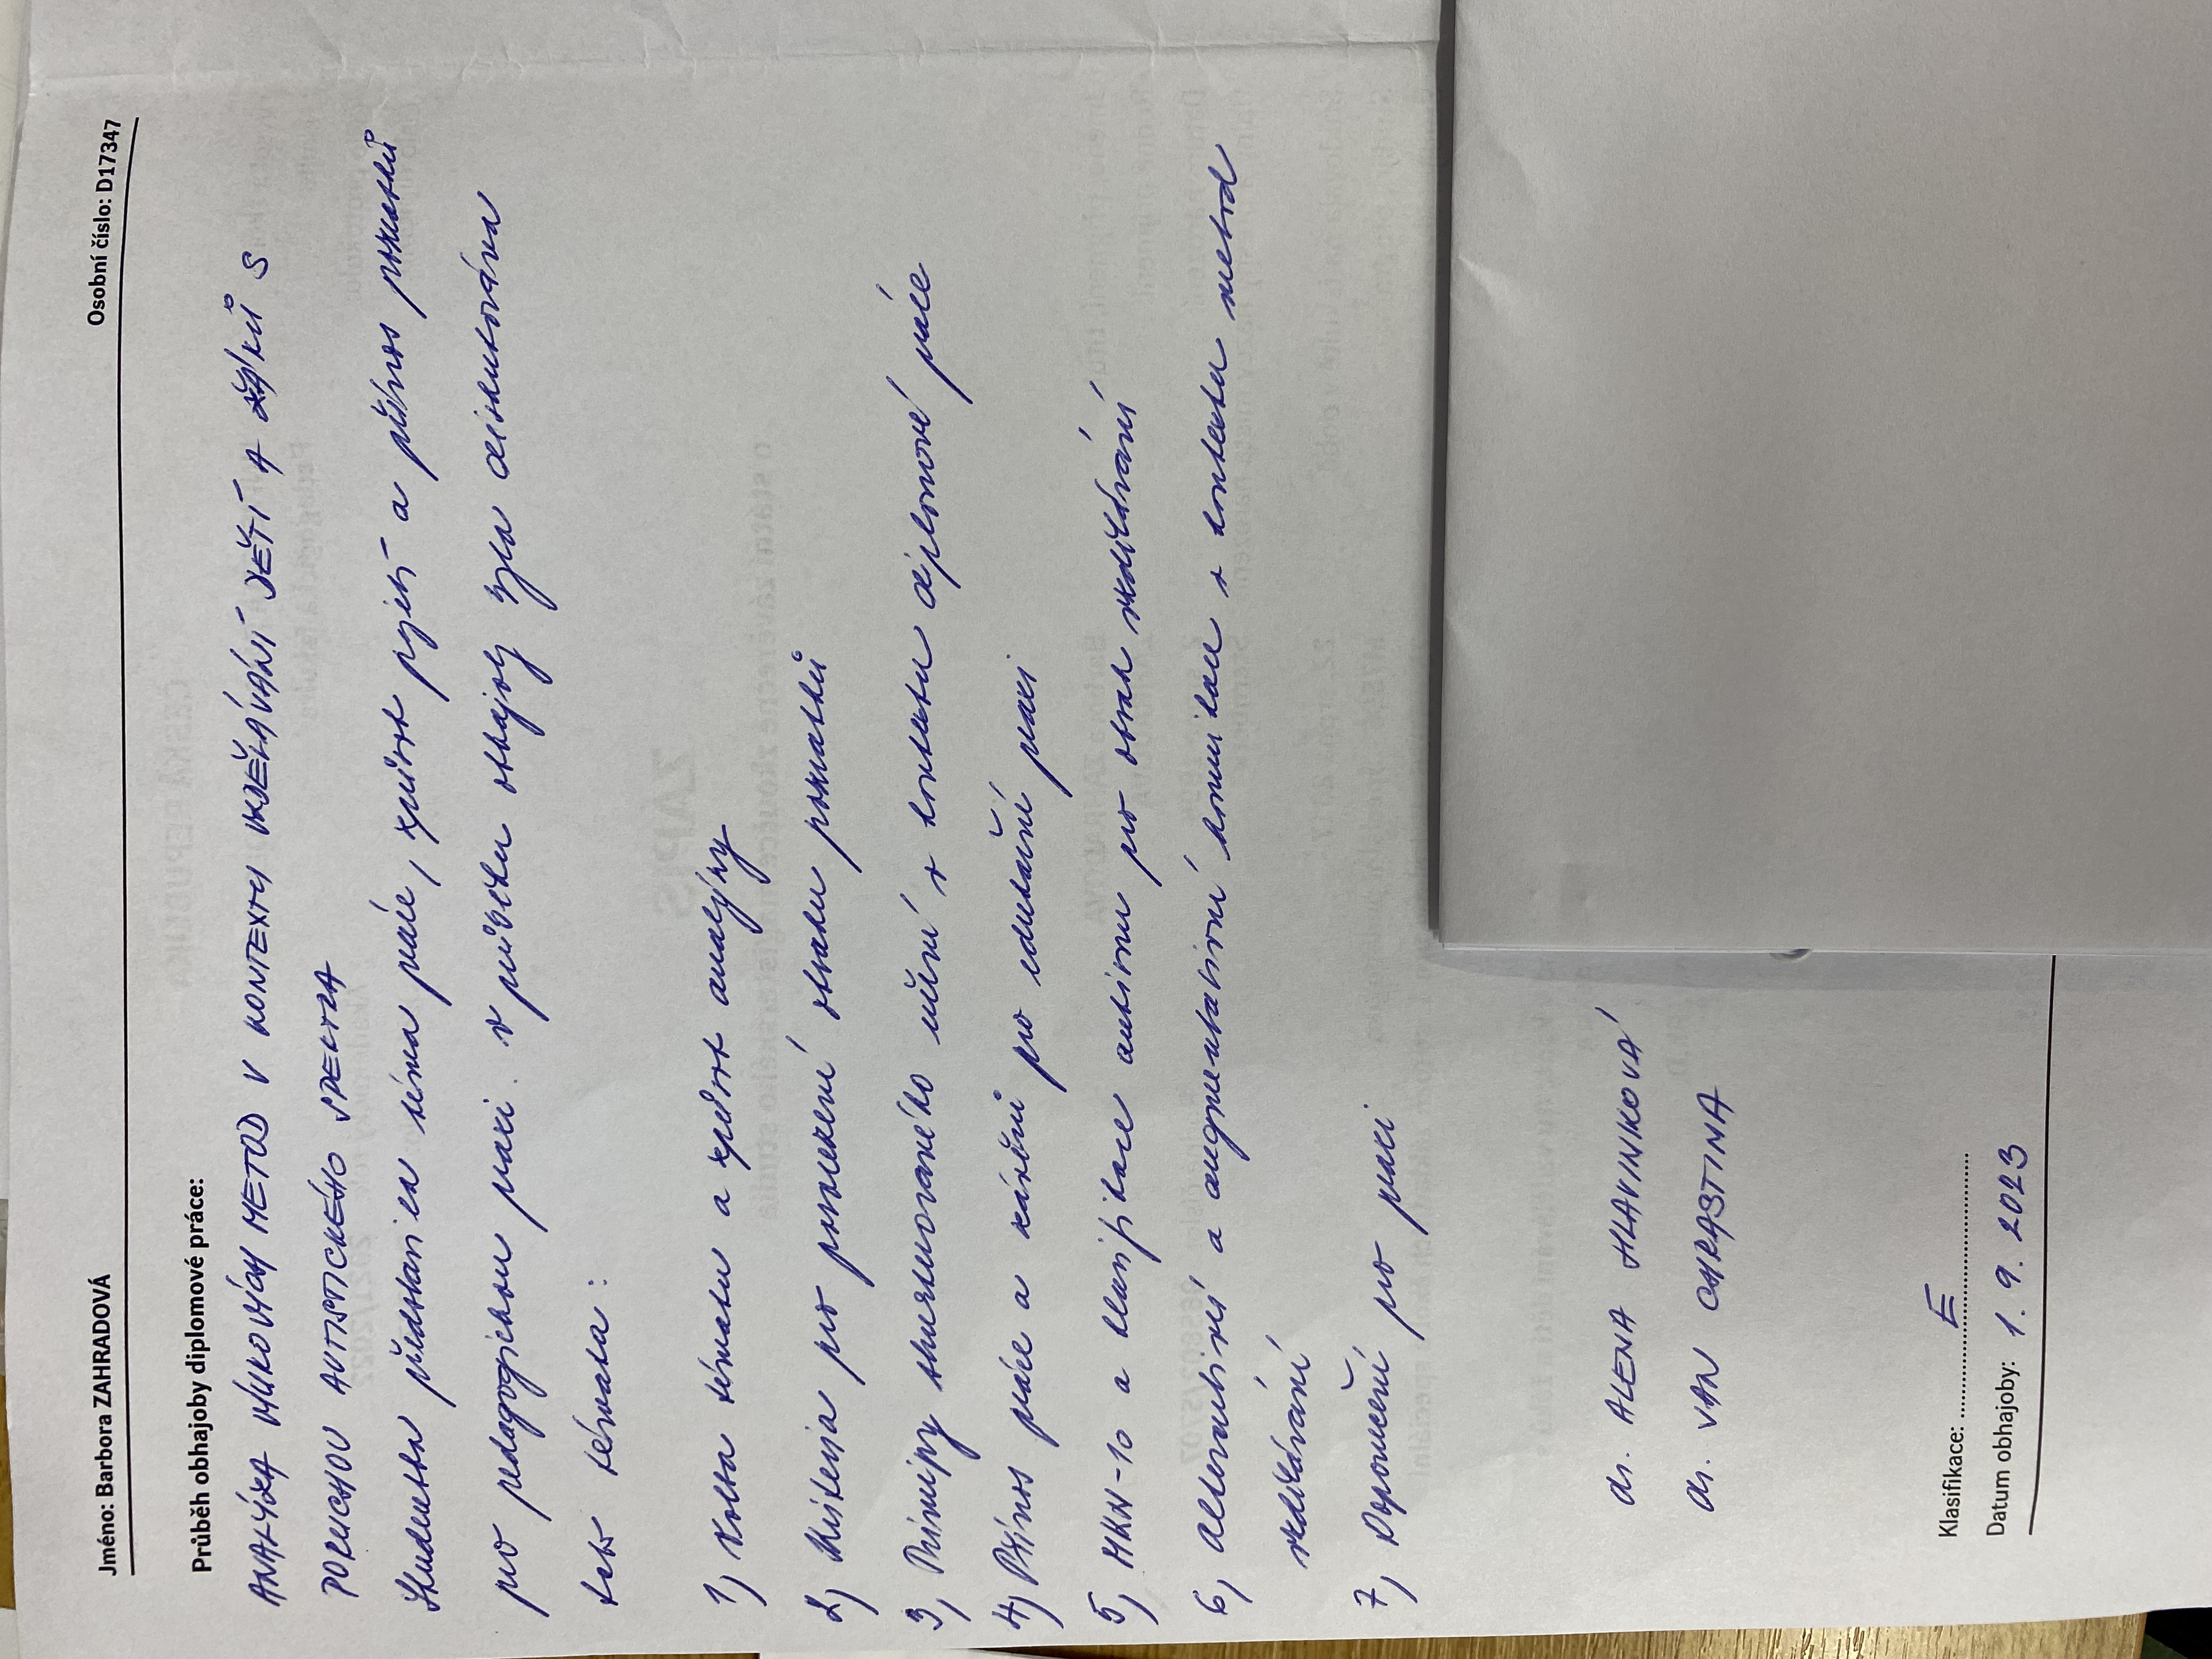 Jméno: Barbora ZAHRADOVÁ Osobní číslo: D17347
Průběh obhajoby diplomové práce:
ANALÝZA VÝUKOVÝCH METOD V KONTEXTU VZDĚLÁVÁNÍ DĚTÍ A ŽÁKŮ S
PORUCHOU AUTISTICKÉHO SPEKTRA
Studentka představila téma práce, způsob pojetí a přínos poznatků
pro pedagogickou praxi. V průběhu obhajoby byla diskutována
tato témata:
1) Volba tématu a způsob analýzy
2) Kritéria pro posouzení obsahu poznatků
3) Principy strukturovaného učení v kontextu diplomové práce
4) Přínos práce a závěrů pro edukační praxi
5) MKN-10 a klasifikace autismu pro obsah vzdělávání
6) Alternativní a augmentativní komunikace v kontextu metod
vzdělávání
7) Doporučení pro praxi
dr. ALENA HLAVINKOVÁ
dr. JAN CHRASTINA
Klasifikace: E
Datum obhajoby: 1. 9. 2023